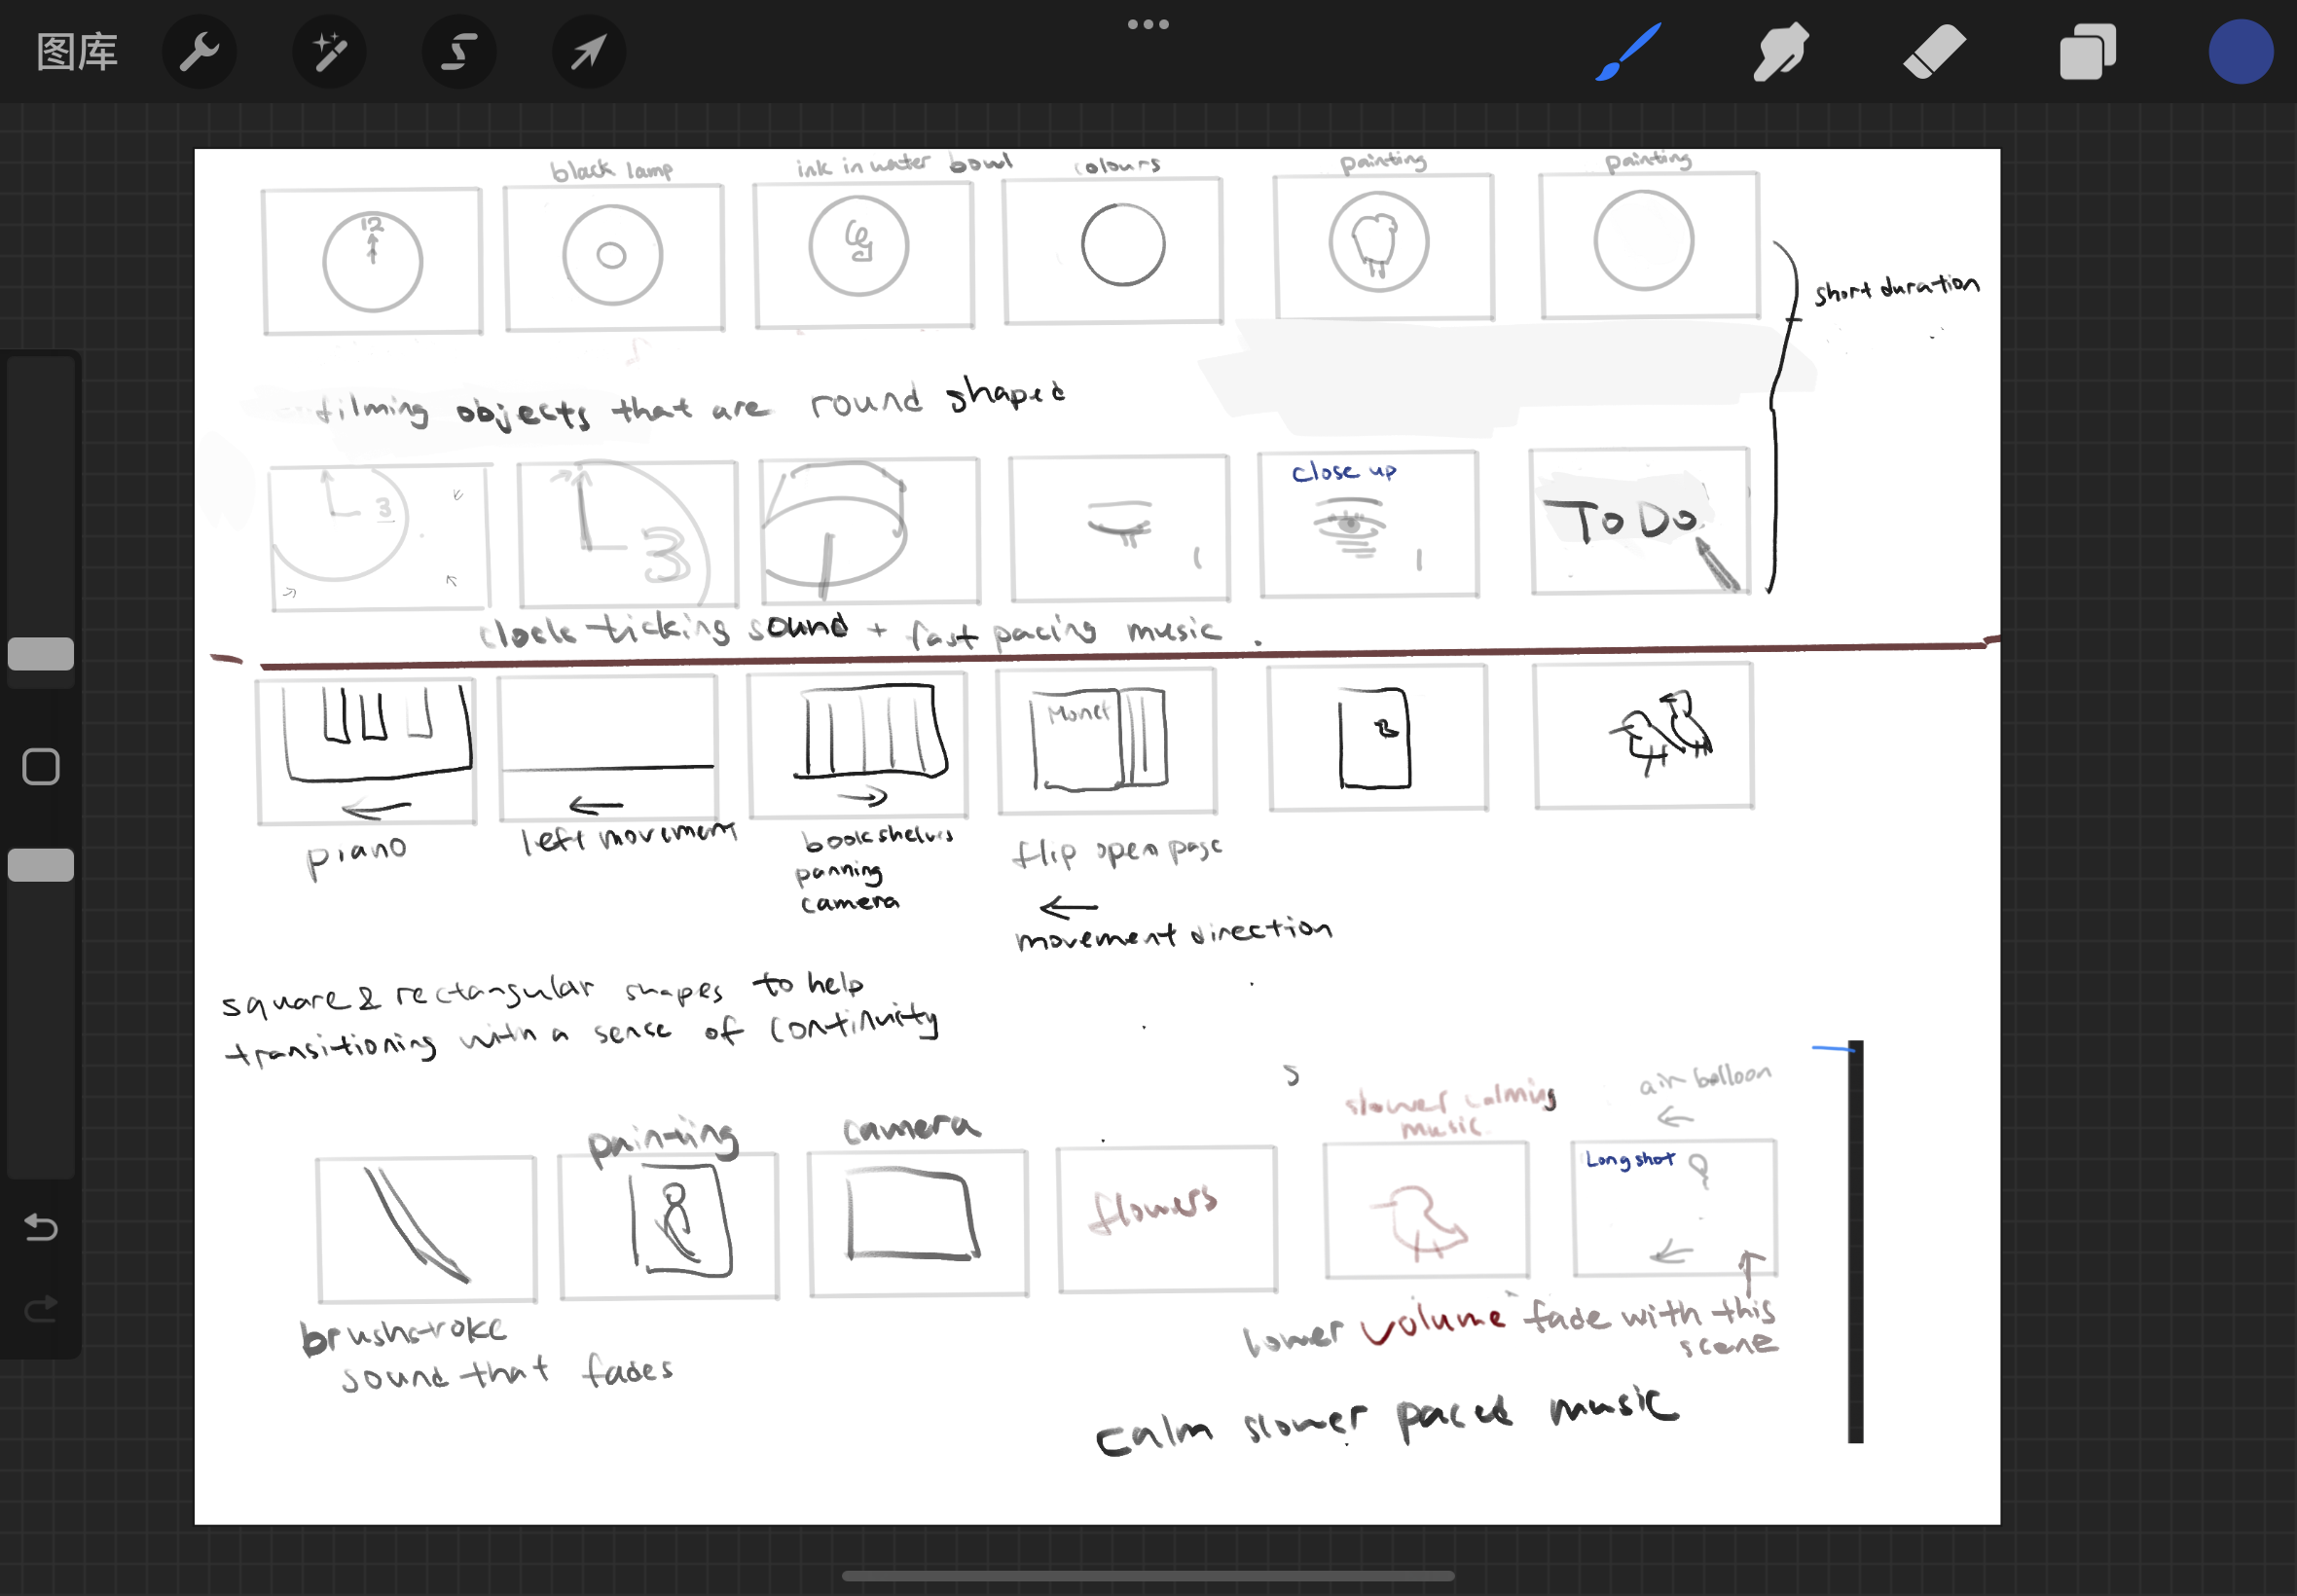 图库
black lamp
ink in water bowl
colours
painting
painting
12
short duration
filming objects that are round shaped
3
3
close up
To Do
clock ticking sound + fast pacing music.
Monet
piano
left movement
book shelves
panning
camera
flip open page
movement direction
square & rectangular shapes to help
transitioning with a sense of continuity
painting
camera
flowers
slower calming
music
air balloon
Long shot
brushstroke
sound that fades
lower volume fade with this
scene
calm slower paced music